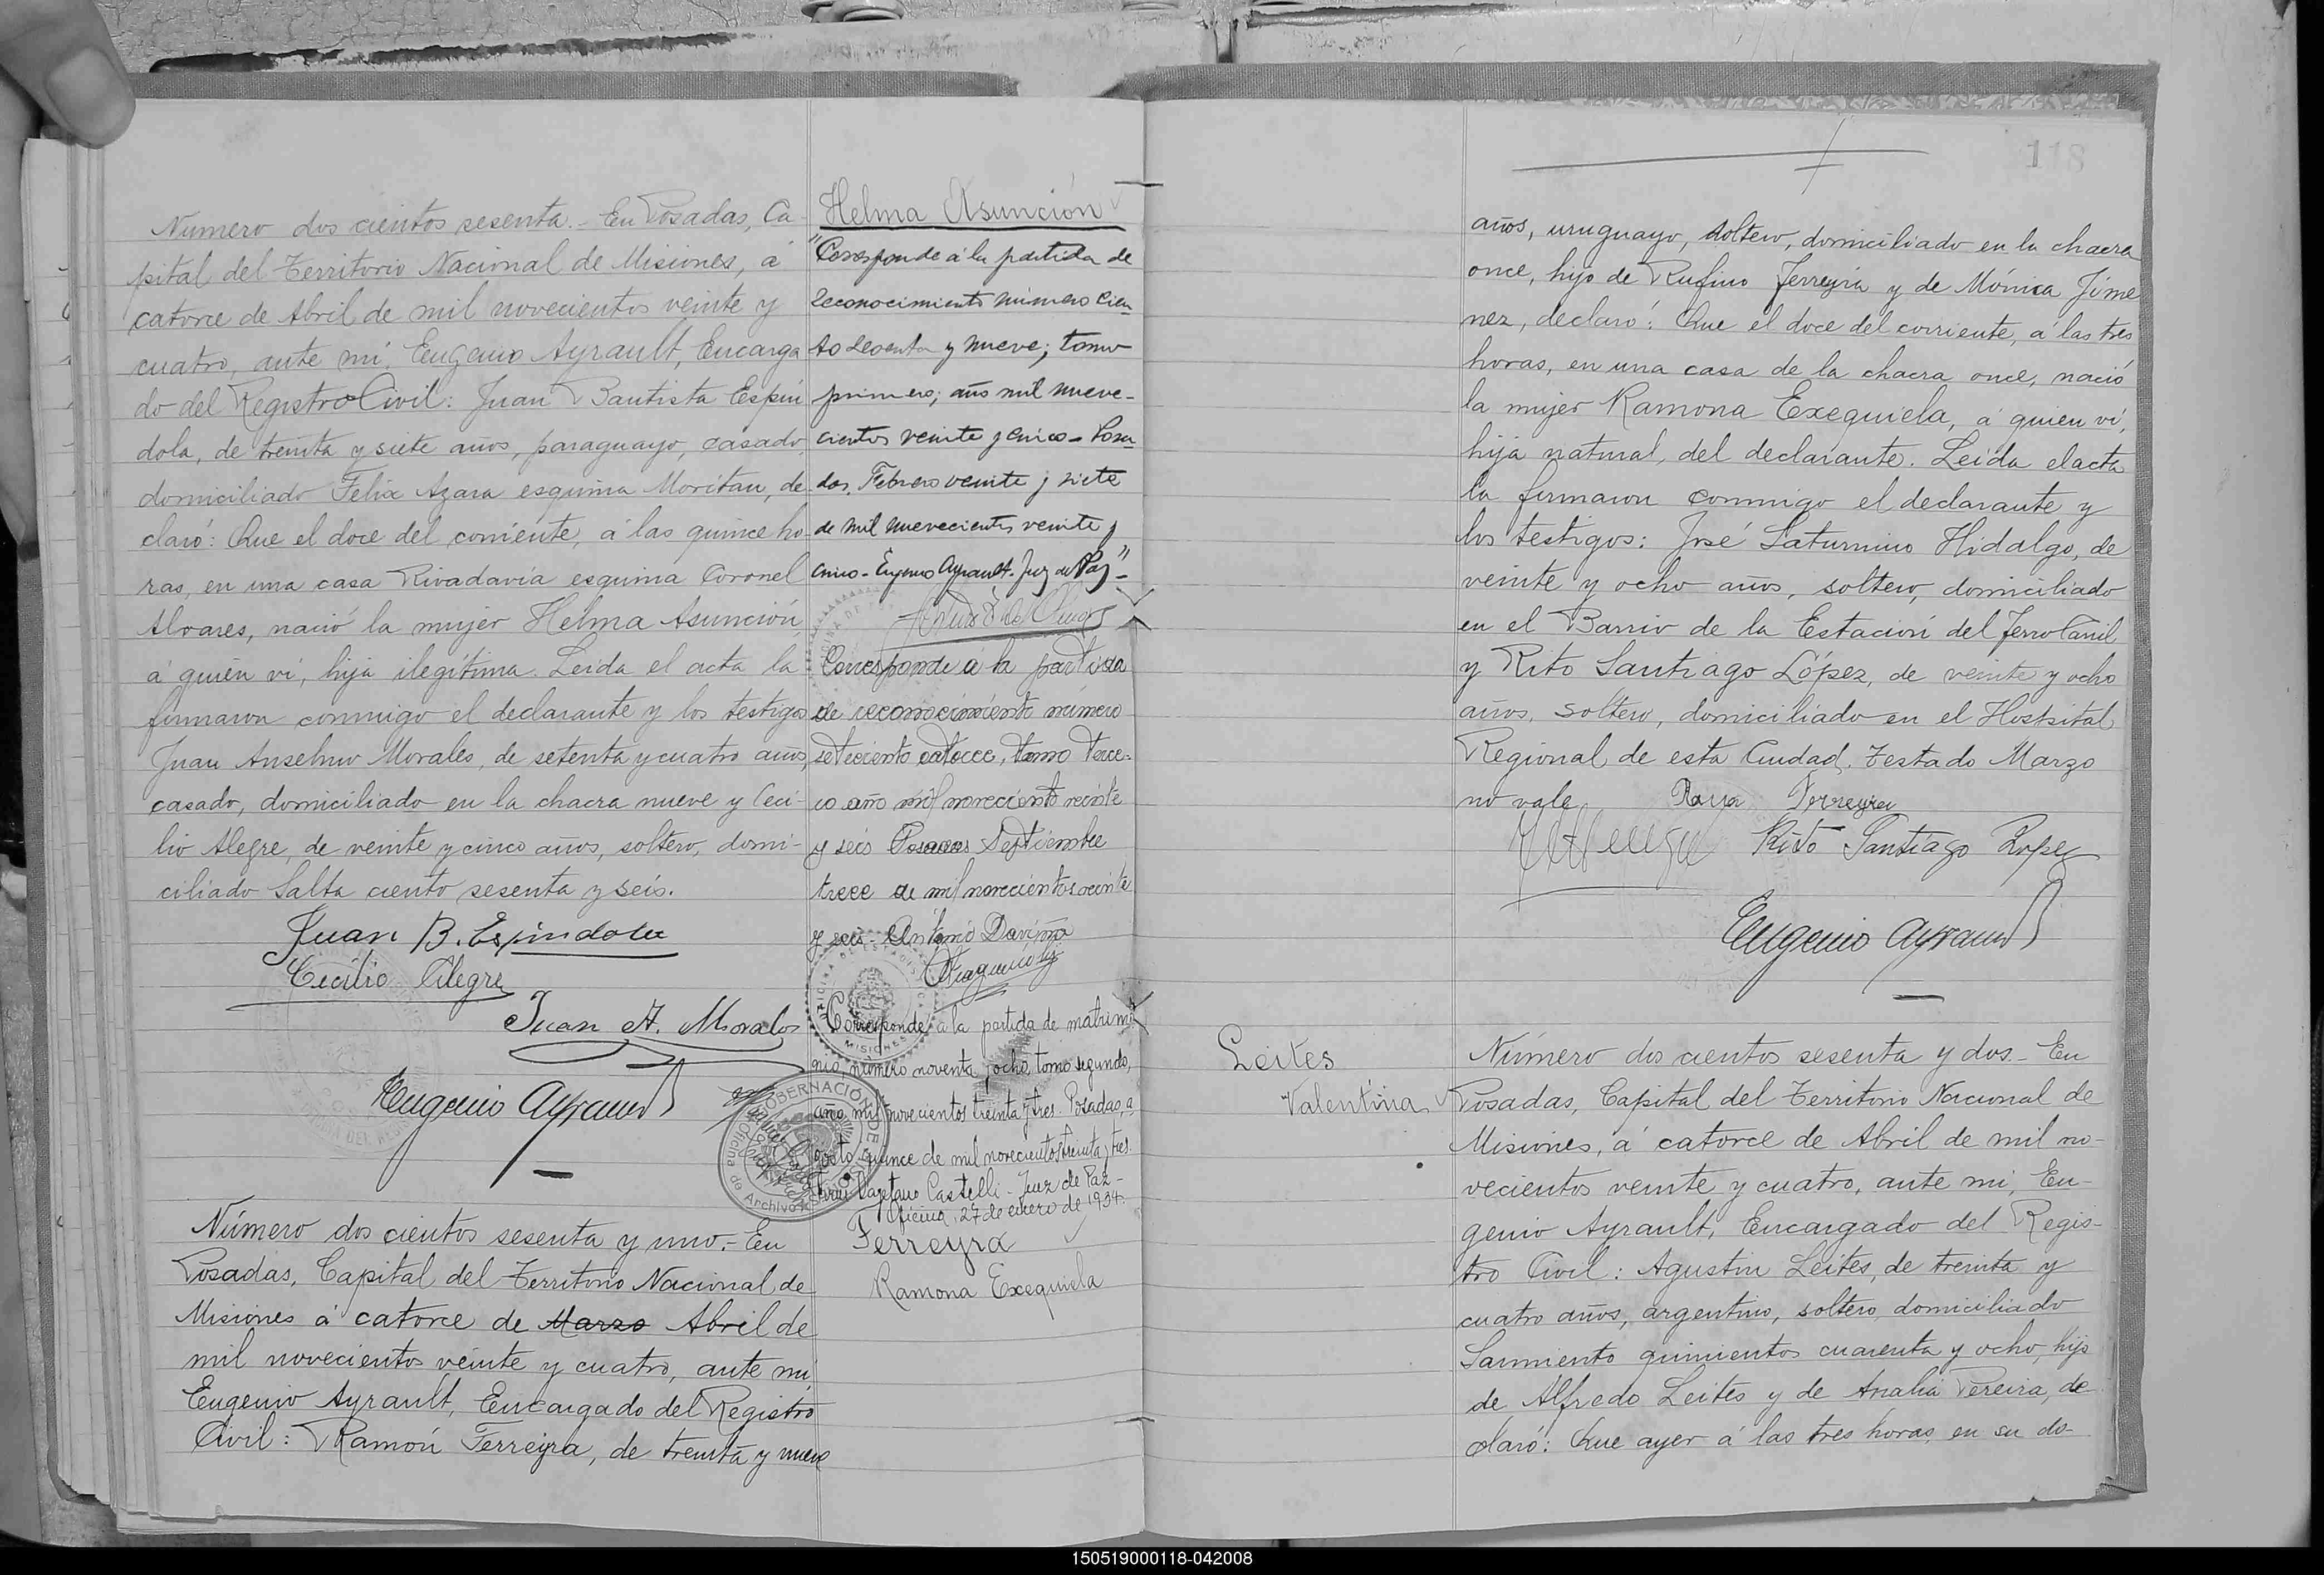 Número dos cientos sesenta.- En Posadas, Ca-
pital del Territorio Nacional de Misiones, á
catorce de Abril de mil novecientos veinte y
cuatro, ante mi, Eugenio Ayrault, Encarga
do del Registro Civil: Juan Bautista Espín
dola, de treinta y siete años, paraguayo, casado,
domiciliado Felix Azara esquina Moritan, de
claró: Que el doce del corriente, á las quince ho-
ras, en una casa Rivadavia esquina Coronel
Alvares, nació la mujer Helma Asunción,
á quien ví, hija ilegítima. Leida el acta la
firmaron conmigo el declarante y los testigos
Juan Anselmo Morales, de setenta y cuatro años,
casado, domiciliado en la chacra nueve y Ceci-
lio Alegre, de veinte y cinco años, soltero, domi-
ciliado Salta ciento sesenta y seis.
Juan B. Espindola
Cecilio Alegre
Juan A. Morales
Eugenio Ayrault
Número dos cientos sesenta y uno.- En
Posadas, Capital del Territorio Nacional de
Misiones á catorce de Marzo Abril de
mil novecientos veinte y cuatro, ante mi,
Eugenio Ayrault, Encargado del Registro
Civil: Ramón Ferreyra, de treinta y nueve
Helma Asunción
"Corresponde á la partida de
reconocimiento número cien
to sesenta y nueve; tomo
primero; año mil nueve-
cientos veinte y cinco - Posa
das, Febrero veinte y siete
de mil nuevecientos veinte y
cinco - Eugenio Ayrault - Juez de Paz"-
Corresponde á la partida
de reconocimiento número
seteciento catorce, tomo terce-
ro año mil novecciento veinte
y seis Posadas Septiembre
trece de mil novecientos veinte
y seis - Antonio Daviña
OFICINA DE ESTADISTICA
MISIONES
Corresponde a la partida de matrimo
nio, número noventa y ocho, tomo segundo,
año mil novecientos treinta y tres. Posadas, a
gosto quince de mil novecientos treinta y tres.
Cayetano Castelli - Juez de Paz -
Oficina, 27 de enero de 1934.
GOBERNACIÓN DE
de Archivo
Ferreyra
Ramona Exequiela
118
años, uruguayo, soltero, domiciliado en la chacra
once, hijo de Rufino Ferreyra y de Mónica Jime
nez, declaró: Que el doce del corriente, á las tres
horas, en una casa de la chacra once, nació
la mujer Ramona Exequiela, á quien ví,
hija natural, del declarante. Leida el acta
la firmaron conmigo el declarante y
los testigos: José Saturnino Hidalgo, de
veinte y ocho años, soltero, domiciliado
en el Barrio de la Estación del Ferro Carril
y Rito Santiago López, de veinte y ocho
años, soltero, domiciliado en el Hospital
Regional de esta Ciudad. Testado Marzo
no vale
Ferreyra
Rito Santiago Lopez
Eugenio Ayrault
Leites
Valentina
Número dos cientos sesenta y dos.- En
Posadas, Capital del Territorio Nacional de
Misiones, á catorce de Abril de mil no-
vecientos veinte y cuatro, ante mi, Eu-
genio Ayrault, Encargado del Regis-
tro Civil: Agustin Leites, de treinta y
cuatro años, argentino, soltero, domiciliado
Sarmiento quinientos cuarenta y ocho, hijo
de Alfredo Leites y de Analia Pereira, de
claró: Que ayer á las tres horas, en su do-
150519000118-042008